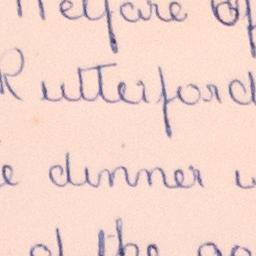 Welfare of
Rutterford
dinner
of the